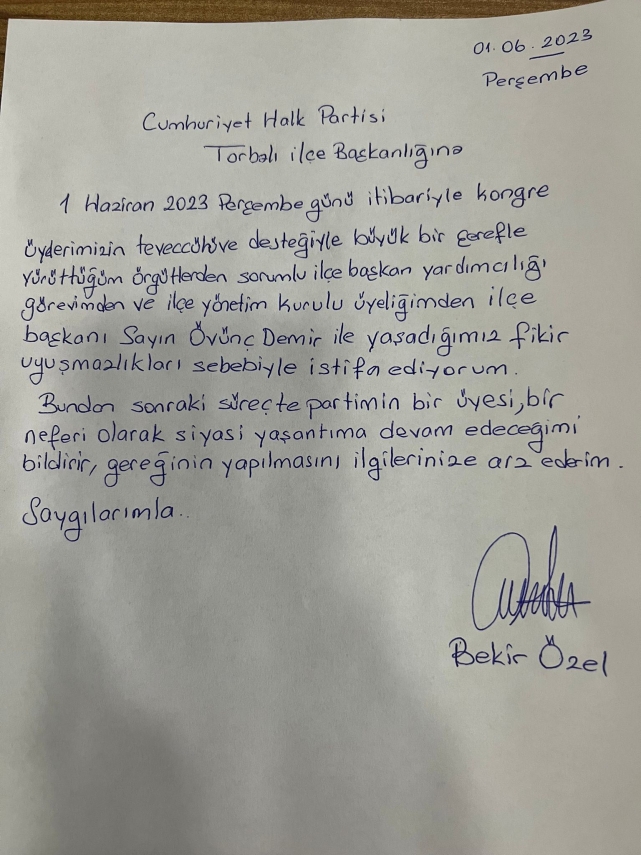 01.06.2023
Perşembe
Cumhuriyet Halk Partisi
Torbalı ilçe Başkanlığına
1 Haziran 2023 Perşembe günü itibariyle kongre
üyderimizin teveccühüve desteğiyle büyük bir şerefle
yürüttüğüm örgütlerden sorumlu ilçe başkan yardımcılığı
görevimden ve ilçe yönetim kurulu üyeliğimden ilçe
başkanı Sayın Övünç Demir ile yaşadığımız fikir
uyuşmazlıkları sebebiyle istifa ediyorum.
Bundan sonraki süreçte partimin bir üyesi, bir
neferi olarak siyasi yaşantıma devam edeceğimi
bildirir, gereğinin yapılmasını ilgilerinize arz ederim.
Saygılarımla..
Bekir Özel